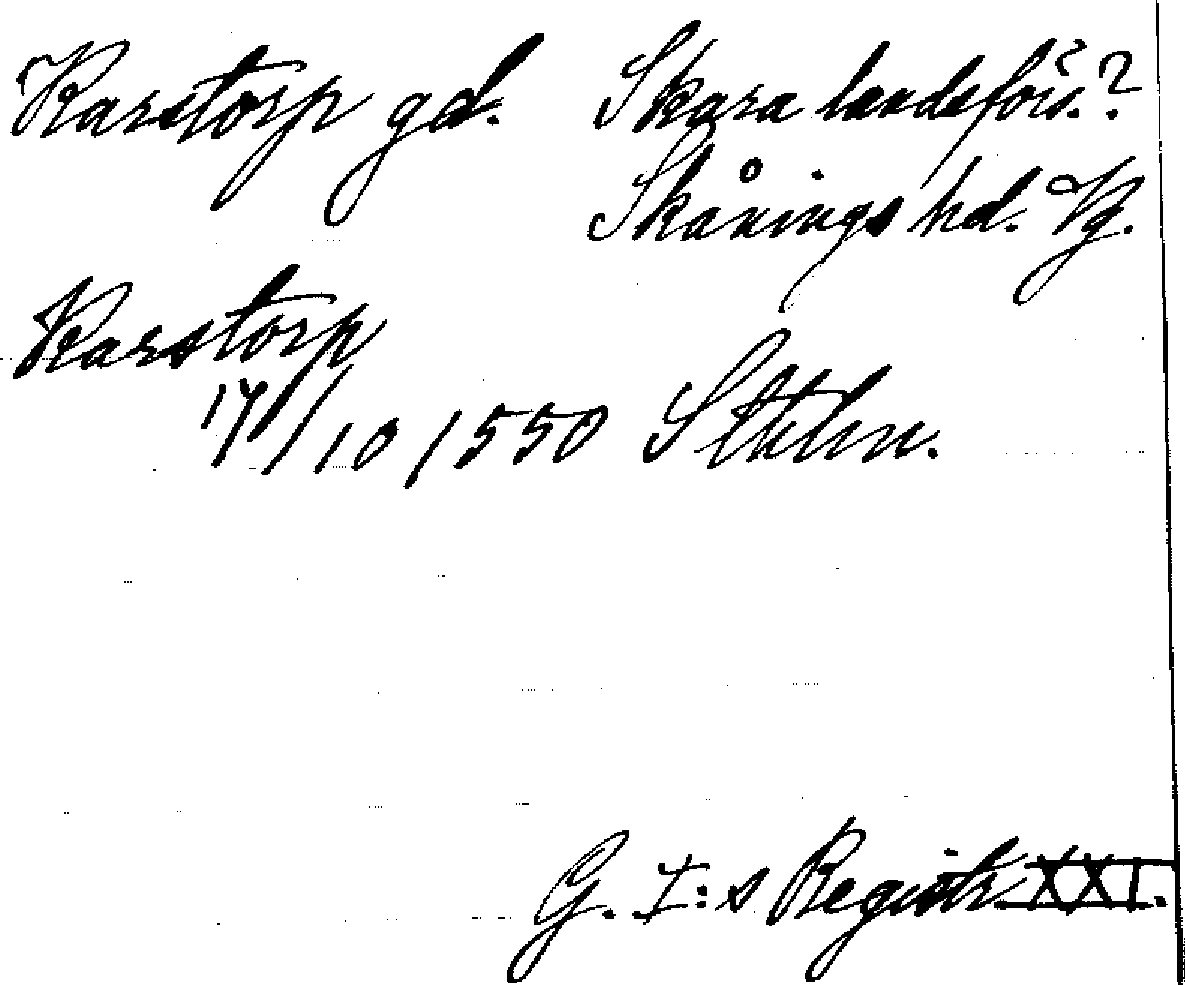 Karstorp gd. Skara landsförs.?
Skånings hd. Vg.
Karstorp
17/10 1550 Sthlm.
G. I:s Registr. XXI.